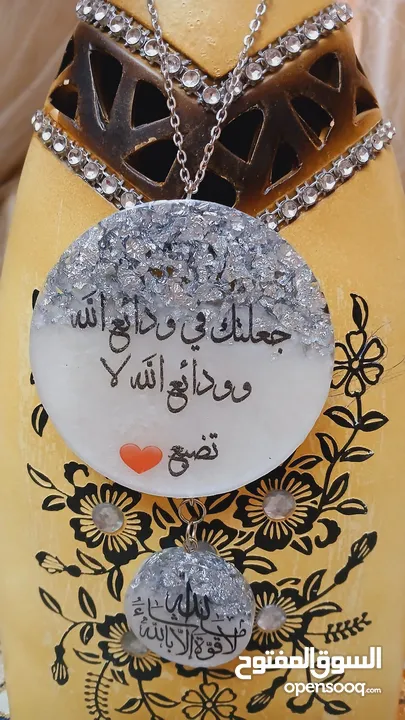 جعلتك في ودائع الله
وودائع الله لا
تضيع
ما شاء الله
لا قوة إلا بالله
السوق المفتوح
opensooq.com